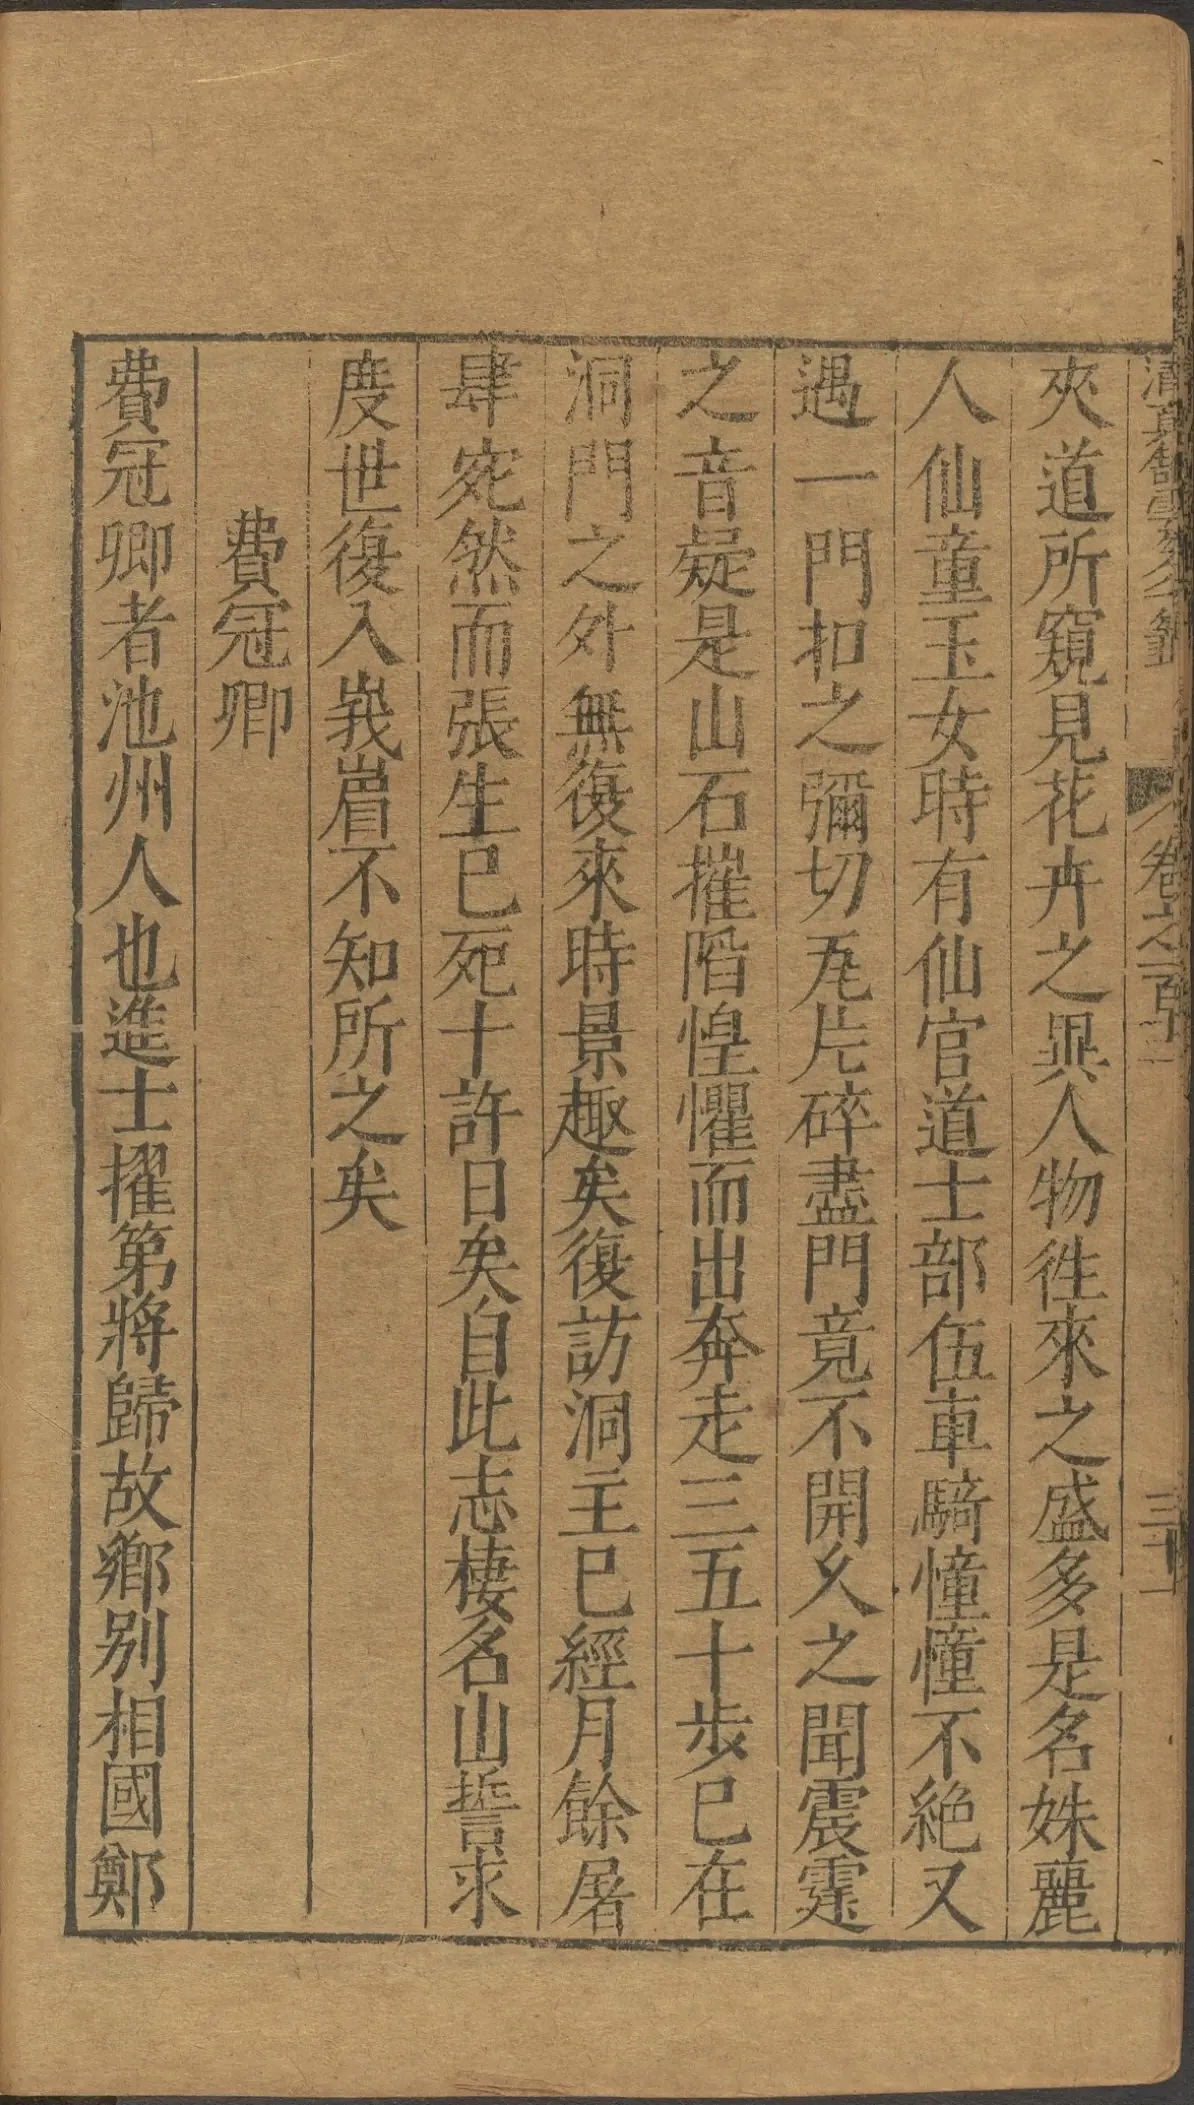 清真館雲笈七籤 卷之百十 三十一
夾道所窺見花卉之異人物徃來之盛多是名姝麗
人仙童玉女時有仙官道士部伍車騎憧憧不絶又
遇一門扣之彌切瓦片碎盡門竟不開久之聞震霆
之音疑是山石摧陷惶懼而出奔走三五十步已在
洞門之外無復來時景趣矣復訪洞主已經月餘屠
肆宛然而張生已死十許日矣自此志棲名山誓求
度世復入峩嵋不知所之矣
費冠卿
費冠卿者池州人也進士擢第將歸故鄉别相國鄭